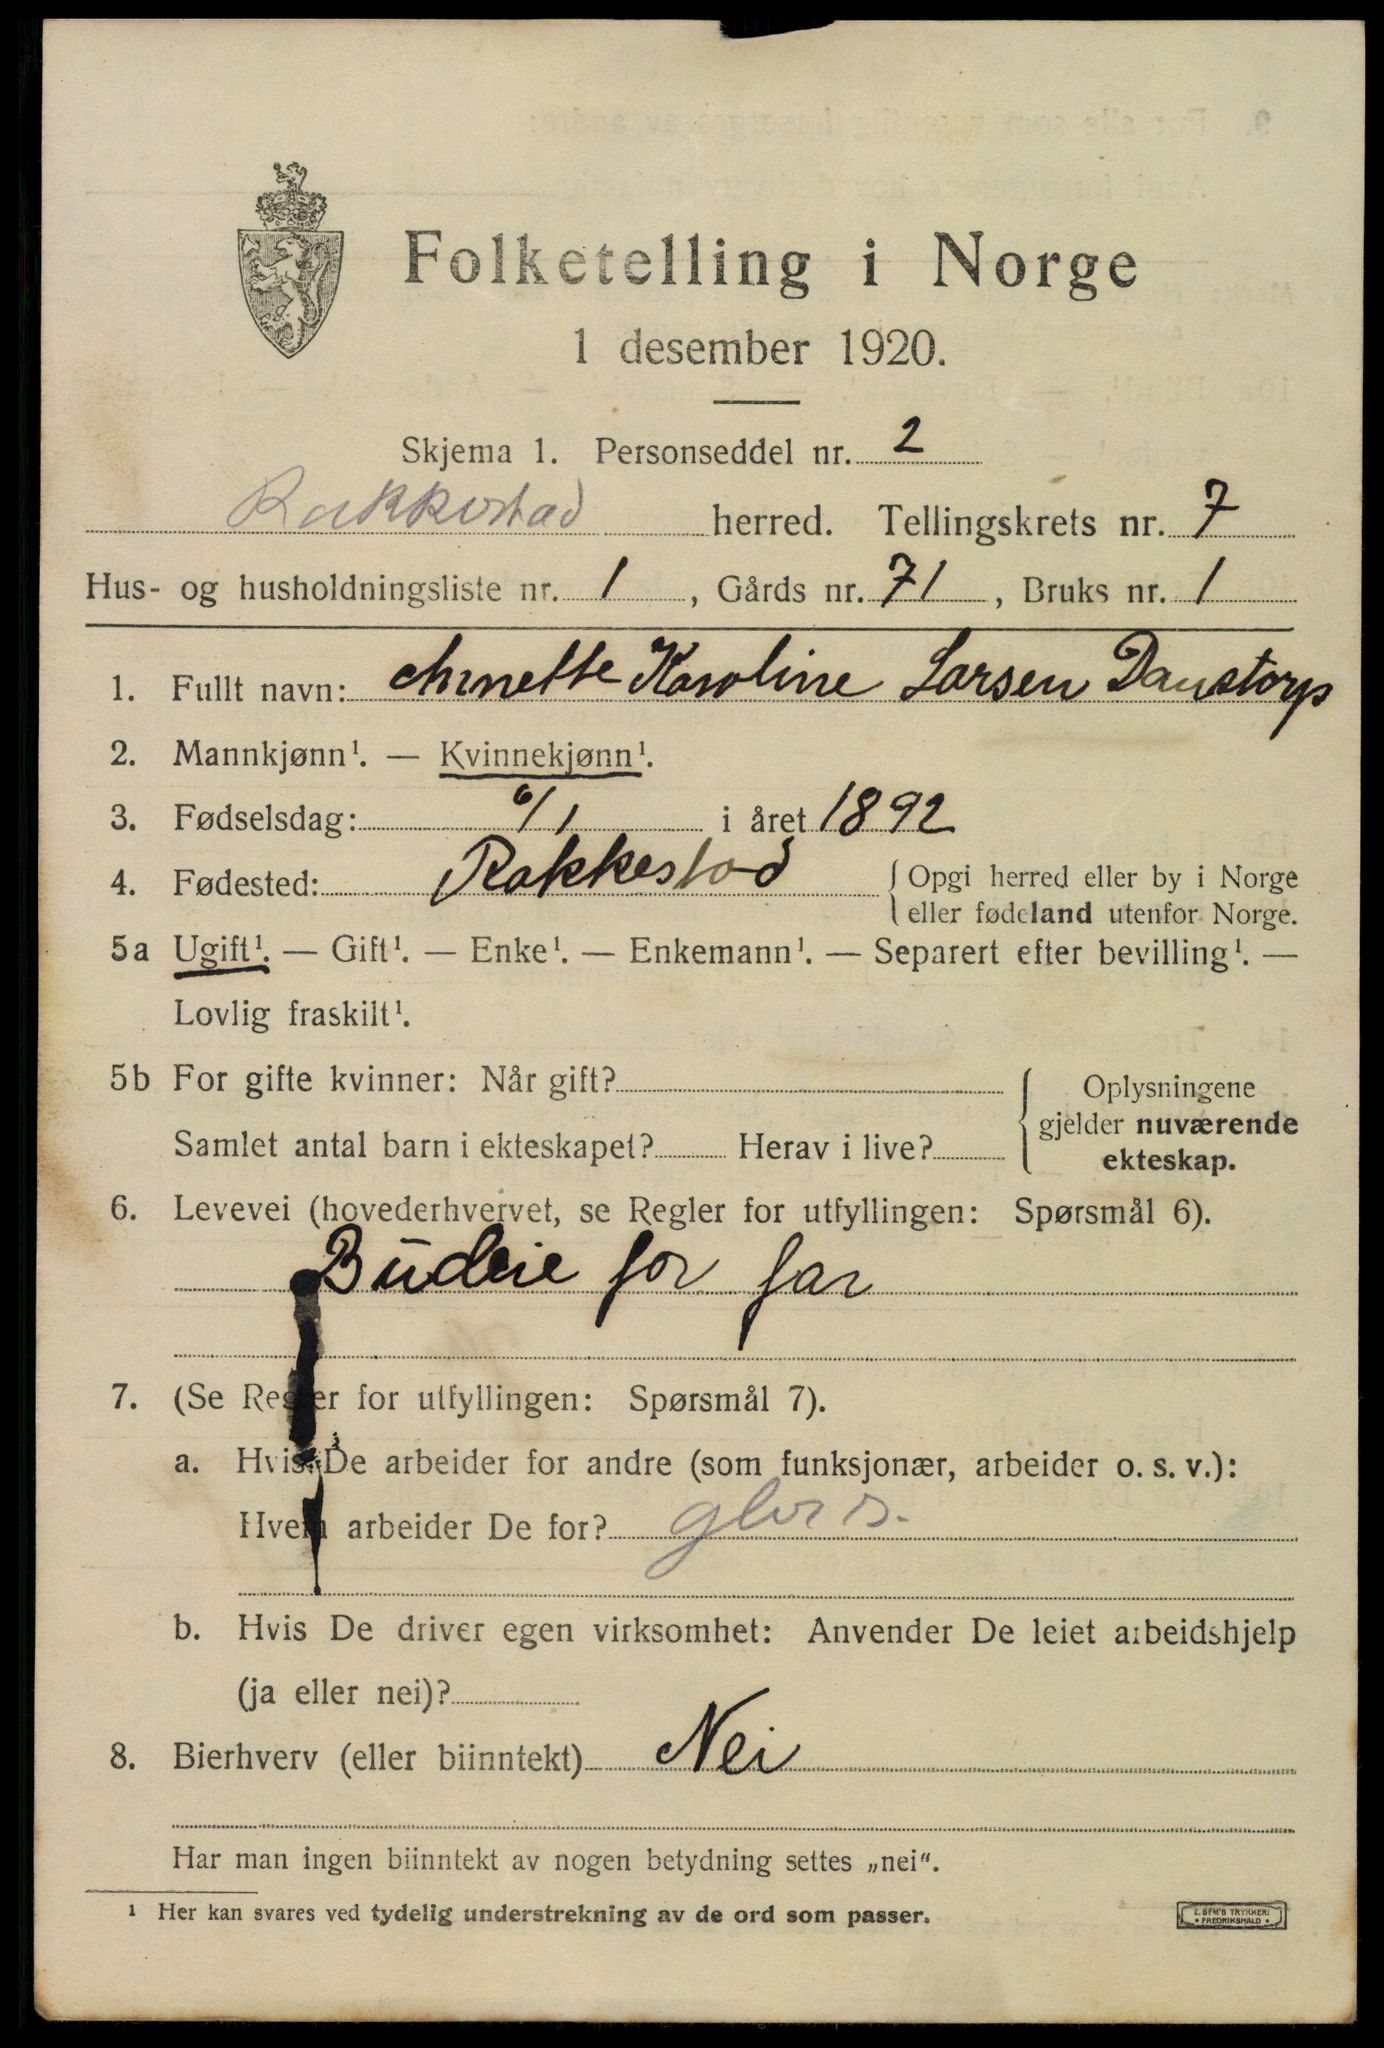 Folketelling i Norge
1 desember 1920.
Skjema 1. Personseddel nr. 2
Rakkestad herred. Tellingskrets nr. 7
Hus- og husholdningsliste nr. 1, Gårds nr. 71, Bruks nr. 1
1. Fullt navn: Annette Karoline Larsen Daustorp
2. Mannkjønn¹. — Kvinnekjønn¹.
3. Fødselsdag: 6/1 i året 1892
4. Fødested: Rakkestad {Opgi herred eller by i Norge
eller fødeland utenfor Norge.
5a Ugift¹. — Gift¹. — Enke¹. — Enkemann¹. — Separert efter bevilling¹. —
Lovlig fraskilt¹.
5b For gifte kvinner: Når gift?
Samlet antal barn i ekteskapet? Herav i live?
{Oplysningene
gjelder nuværende
ekteskap.
6. Levevei (hovederhvervet, se Regler for utfyllingen: Spørsmål 6).
Budeie for far
7. (Se Regler for utfyllingen: Spørsmål 7).
a. Hvis De arbeider for andre (som funksjonær, arbeider o. s. v.):
Hvem arbeider De for?
b. Hvis De driver egen virksomhet: Anvender De leiet arbeidshjelp
(ja eller nei)?
8. Bierhverv (eller biinntekt) Nei
Har man ingen biinntekt av nogen betydning settes „nei“.
¹ Her kan svares ved tydelig understrekning av de ord som passer.
E. SEM'S TRYKKERI
FREDRIKSHALD